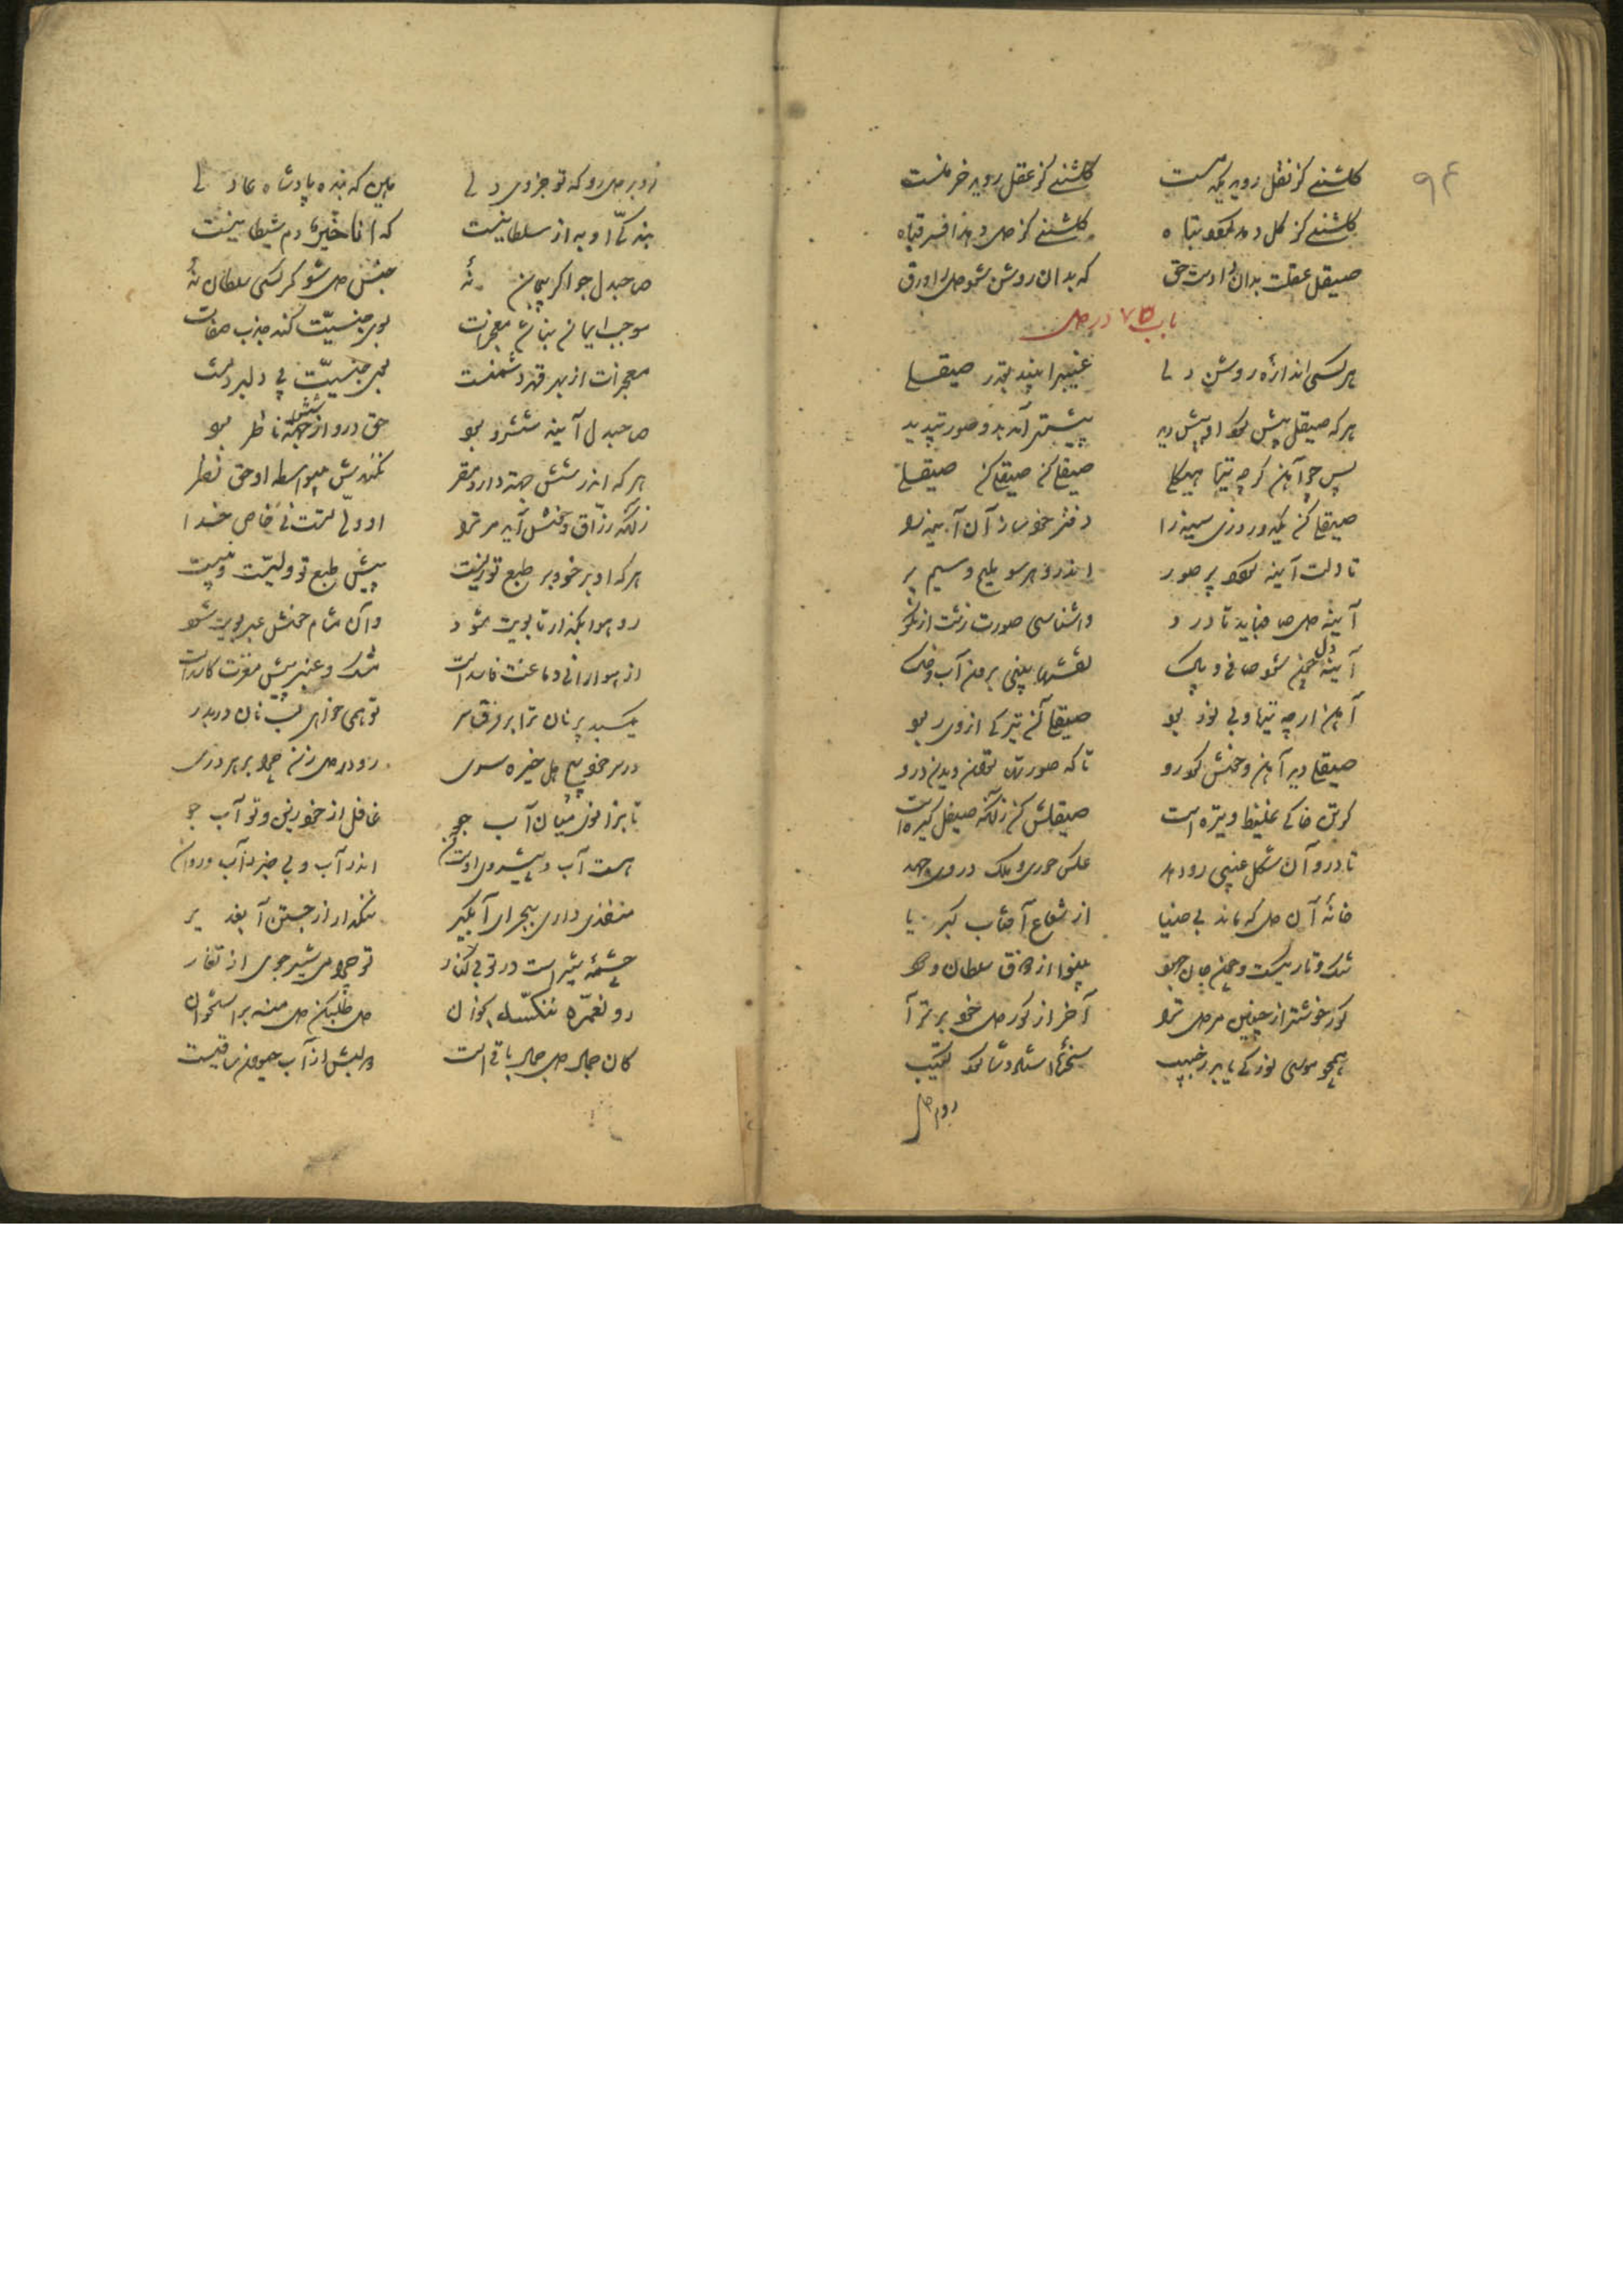 ۹۴
گلشنی کز نقل روید یکدمست گلشنی کز عقل روید خرمست
گلشنی کز گل دمد گردد تباه گلشنی کز دل دمد وافرحتاه
صیقل عقلت بدان دادست حق که بدان روشن شود دل را ورق
باب ۷۵ در دل
هر کسی اندازه روشن دلی غیب را بیند بقدر صیقلی
هر که صیقل بیش کرد او بیش دید بیشتر آمد بدو صورت پدید
پس چو آهن گرچه تیره هیکلی صیقلی کن صیقلی کن صیقلی
صیقلی کن یکدو روزی سینه را دفتر خود ساز آن آیینه را
تا دلت آیینه گردد پر صور اندرو هر سو ملیح و سیم بر
آینه دل صاف باید تا درو واشناسی صورت زشت از نکو
آینه دل چون شود صافی و پاک نقشها بینی برون از آب و خاک
آهن ارچه تیره و بی نور بود صیقلی آن تیرگی از وی ربود
صیقلی دید آهن و خوش کرد رو تا که صورتها توان دیدن درو
گر تن خاکی غلیظ و تیره است صیقلش کن زانکه صیقل گیره است
تا درو اشکال غیبی رو دهد عکس حوری و ملک در وی جهد
خانهٔ آن دل که ماند بی ضیا از شعاع آفتاب کبریا
تنگ و تاریکست چون جان جهود بینوا از ذوق سلطان ودود
گور خوشتر از چنین مر دل ترا آخر از گور دل خود برتر آ
همچو موسی نور کی یابد ز جیب سخرهٔ استاد و شاگرد کتیب
رو بر دل رو که تو جزو دلی هین که بنده پادشاه عادلی
بندگی او به از سلطانیست که انا خیر دم شیطانیست
صاحبدل جو اگر بیجان نهٔ جنس دل شو گر کسی سلطان نهٔ
موجب ایمان نباشد معجزات بوی جنسیت کند جذب صفات
معجزات از بهر قهر دشمنست بوی جنسیت پی دل بردنست
صاحبدل آینه شش رو بود حق درو از شش جهة ناظر بود
هر که اندر شش جهة دارد مقر نکندش بیواسطه او حق نظر
زانکه رزاق و خوش آید مر ترا او ولی تست نی خاص خدا
هر که او بر خو و بر طبع تو زیست پیش طبع تو ولیست و نبیست
رو هوا بگذار تا بویت شود وان مشام خوش عبر بویت شود
از هوارانی دماغت فاسد است مشک و عنبر پیش مغزت کاسد است
یک سبد پر نان ترا بر فرق سر تو همی خواهی لب نان دربدر
در سر خود پیچ هل خیره سری رو در دل زن چرا بر هر دری
تا بزانوئی میان آب جو غافل از خود زین و تو آب جو
هست آب و پیش روی اوست آن اندر آب و بی خبر ز آب روان
منفذی داری ببحر ای آبگیر ننگ دار از جستن آب از غدیر
چشمهٔ شیر است در تو بی کنار تو چرا می شیر جویی از تغار
رو نعمره ننکسه بخوان دل طلب کن دل منه بر استخوان
کان جمال دل جمال باقی است دو لبش از آب حیوان ساقیست